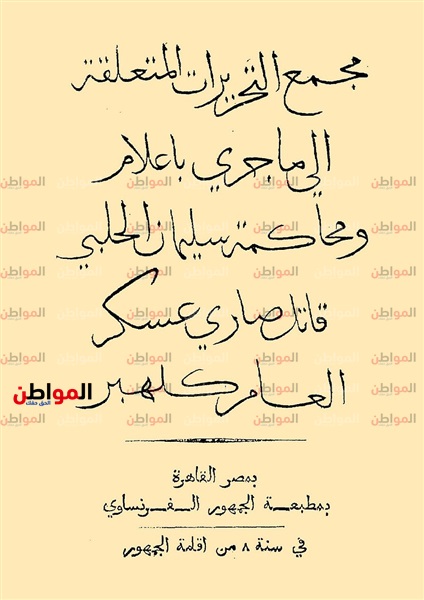 مجمع التحريرات المتعلقة
الى ما جرى باعلام
ومحاكمة سليمان الحلبي
قاتل صاري عسكر
العام كلهبر
المواطن
الحق حقك
بمصر القاهرة
بمطبعة الجمهور الفرنساوي
في سنة ٨ من اقامة الجمهور